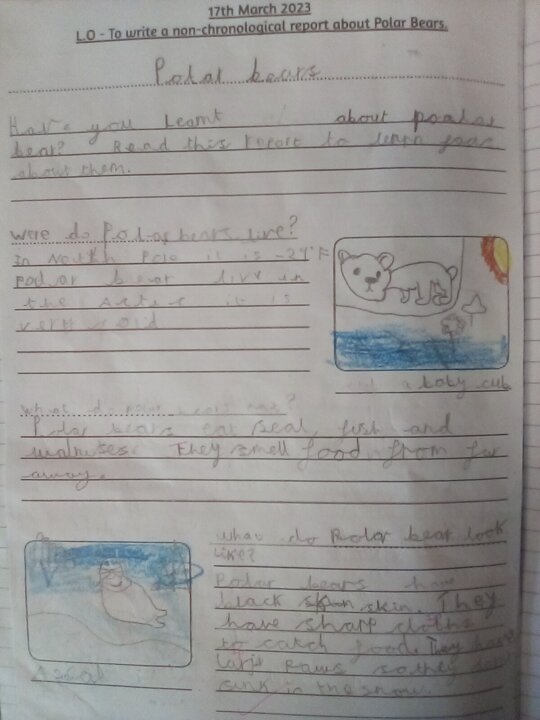 17th March 2023
L.O - To write a non-chronological report about Polar Bears.
Polar bears
Have you learnt about poalar
bear? Read this report to
about them.
Were do Polar bears live?
In North Pole it is -29°F
podar bear live in
the Artic it is
very
a baby cub
What do polar eat?
Polar bears eat seal, fish and
walruses. They smell food from far
away.
What do Polar bear look
like?
Polar bears have
black skin. They
have sharp
to catch food. They have
paws so they
sink in the snow.
A seal